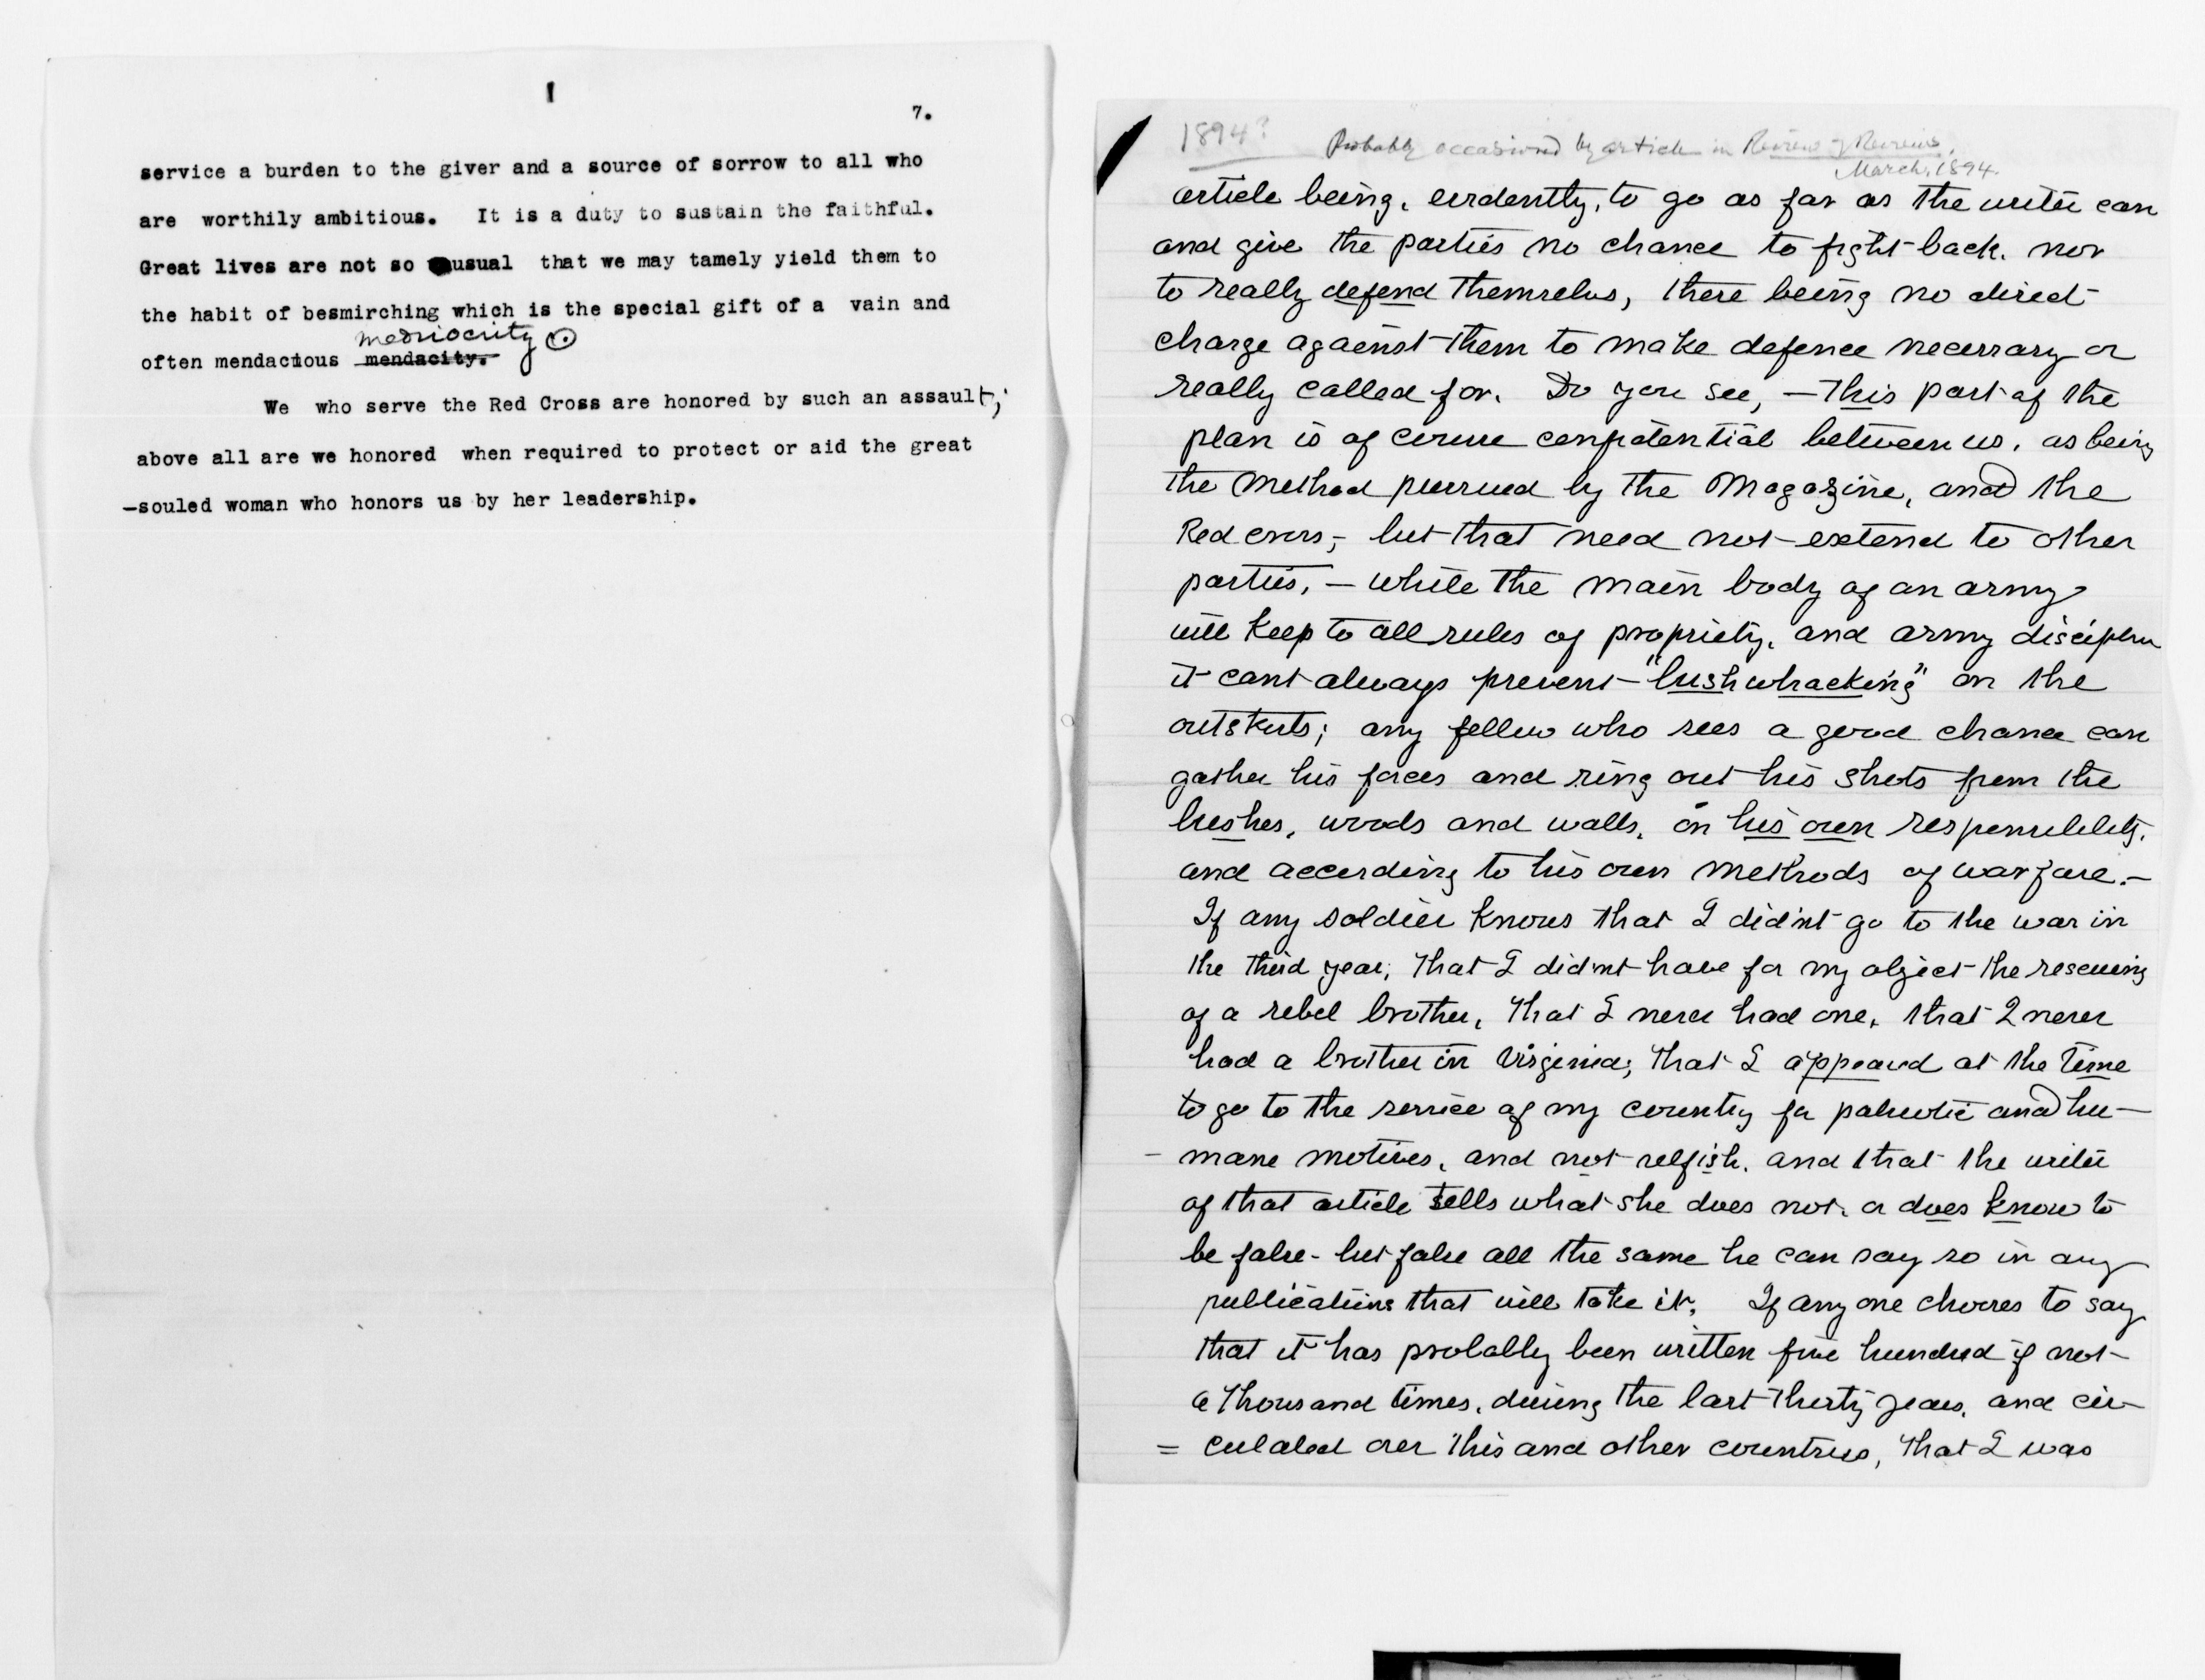 7.
service a burden to the giver and a source of sorrow to all who
are worthily ambitious. It is a duty to sustain the faithful.
Great lives are not so usual that we may tamely yield them to
the habit of besmirching which is the special gift of a vain and
mediocrity
often mendacious mendacity.
We who serve the Red Cross are honored by such an assault,
above all are we honored when required to protect or aid the great
-souled woman who honors us by her leadership.
1894?
Probably occasioned by article in Review of Reviews,
March, 1894.
article being, evidently, to go as far as the writer can
and give the parties no chance to fight back, nor
to really defend themselves, there being no direct
charge against them to make defence necessary or
really called for. Do you see, — This part of the
plan is of course confidential between us, as being
the method pursued by the Magazine, and the
Red cross, but that need not extend to other
parties, — while the main body of an army
will keep to all rules of propriety, and army discipline
it cant always prevent "bushwhacking" on the
outskirts; any fellow who sees a good chance can
gather his forces and ring out his shots from the
bushes, woods and walls, on his own responsibility,
and according to his own methods of warfare.—
If any soldier knows that I didn't go to the war in
the third year, that I didnt have for my object the rescuing
of a rebel brother, that I never had one, that I never
had a brother in Virginia; that I appeared at the time
to go to the service of my country for patriotic and hu-
- mane motives, and not selfish, and that the writer
of that article tells what she does not, or does know to
be false - but false all the same he can say so in any
publications that will take it. If any one chooses to say
that it has probably been written five hundred if not
a thousand times, during the last thirty years, and cir-
= culated over this and other countries, that I was